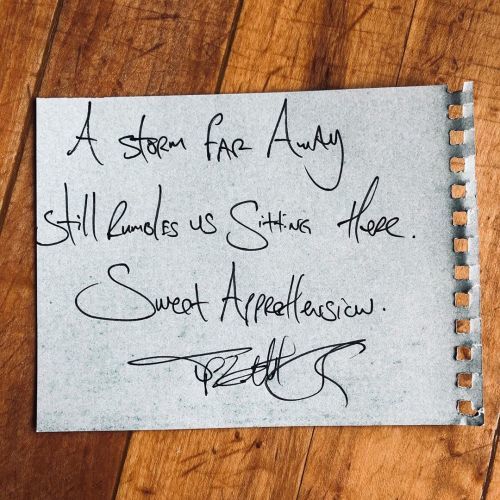 A Storm far Away
still Rumbles us Sitting there.
Sweet Apprehension.